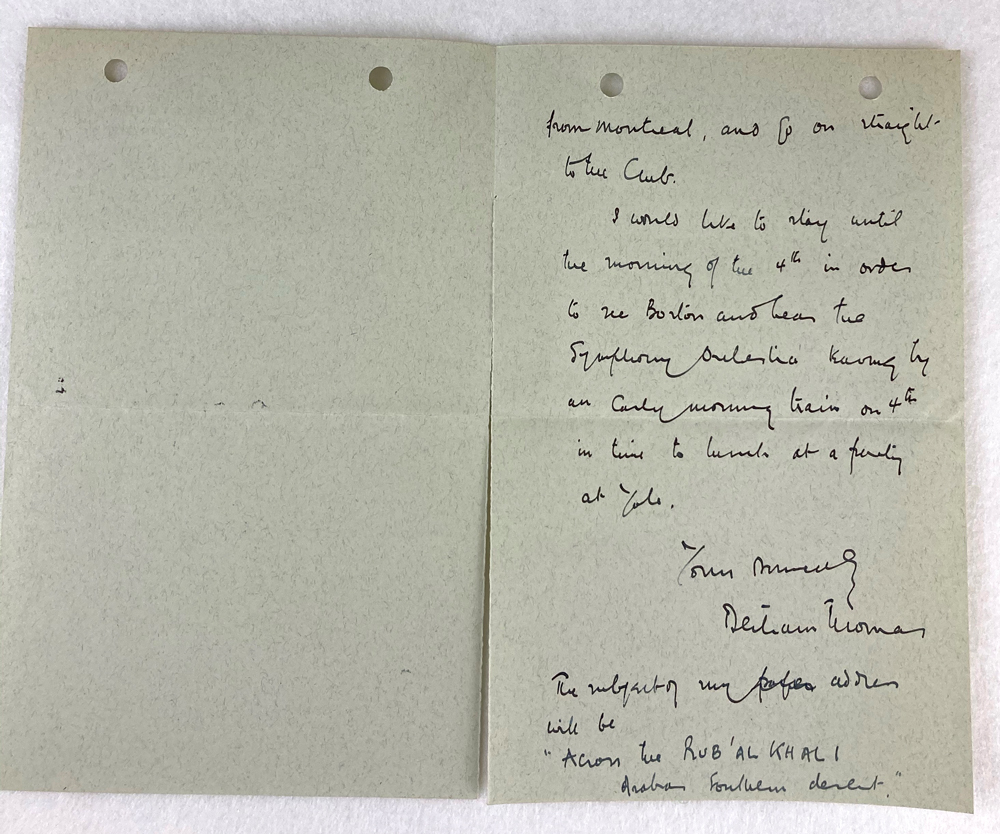 from Montreal, and go on straight
to the Club.
I would like to stay until
the morning of the 4th in order
to see Boston and hear the
Symphony Orchestra leaving by
an early morning train on 4th
in time to lunch at a party
at Yale.
Yours sincerely
Bertram Thomas
The subject of my address
will be
"Across the RUB 'AL KHALI
Arabias Southern desert."